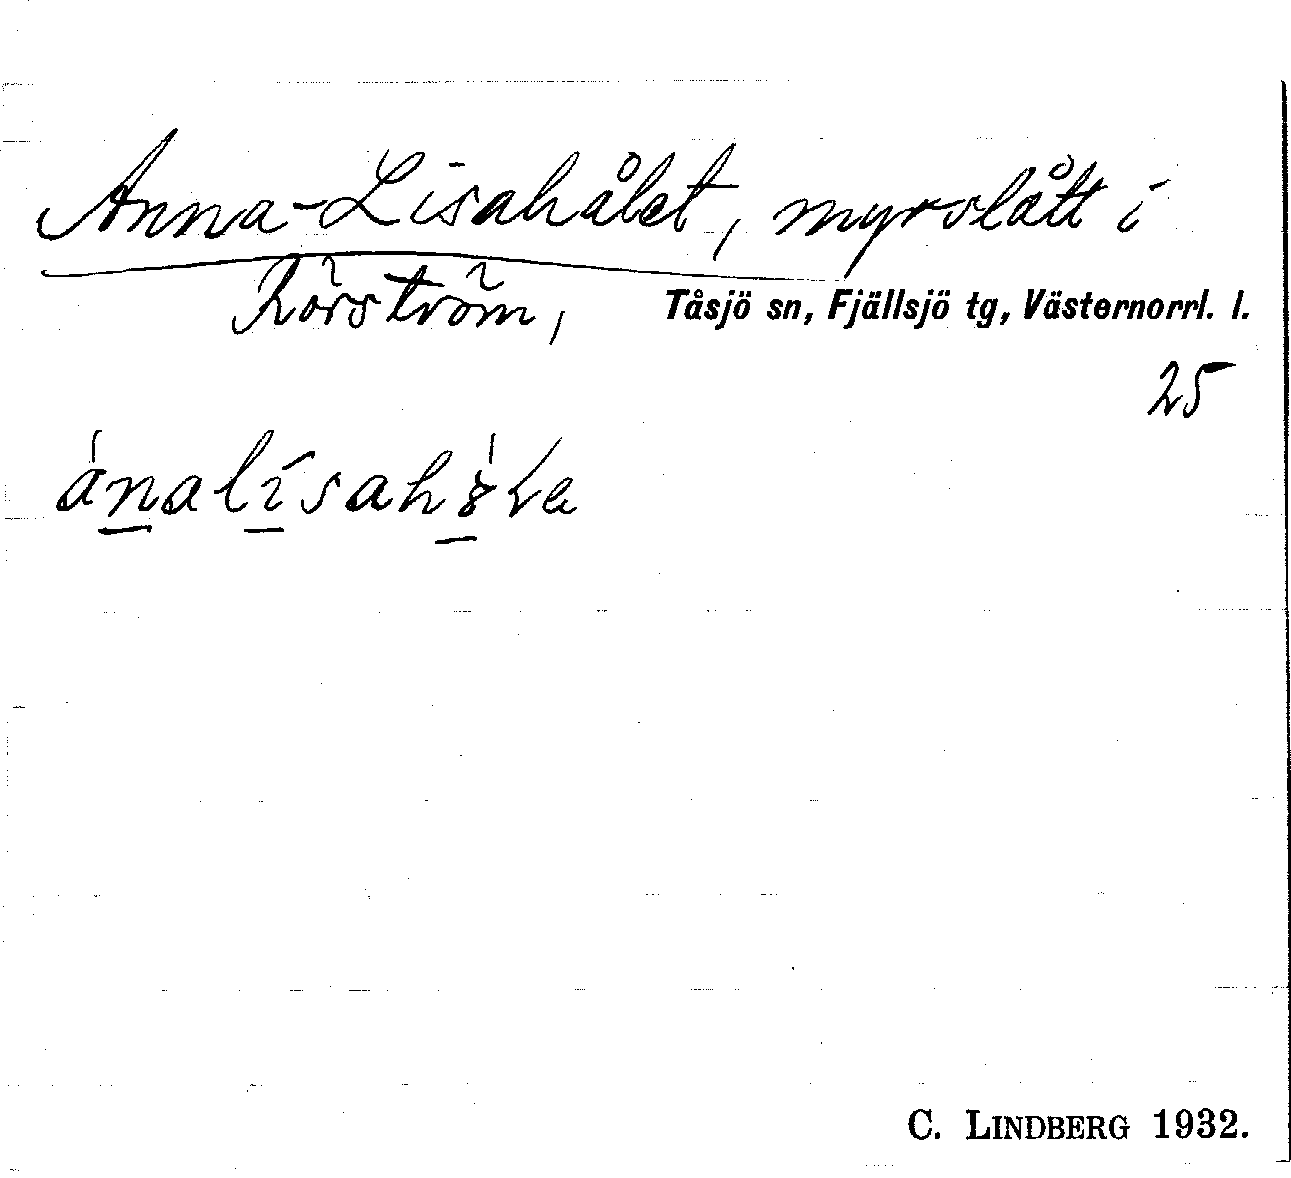 Anna-Lisahålet, myrslått i
Rörström, Tåsjö sn, Fjällsjö tg, Västernorrl. l.
25
C. LINDBERG 1932.